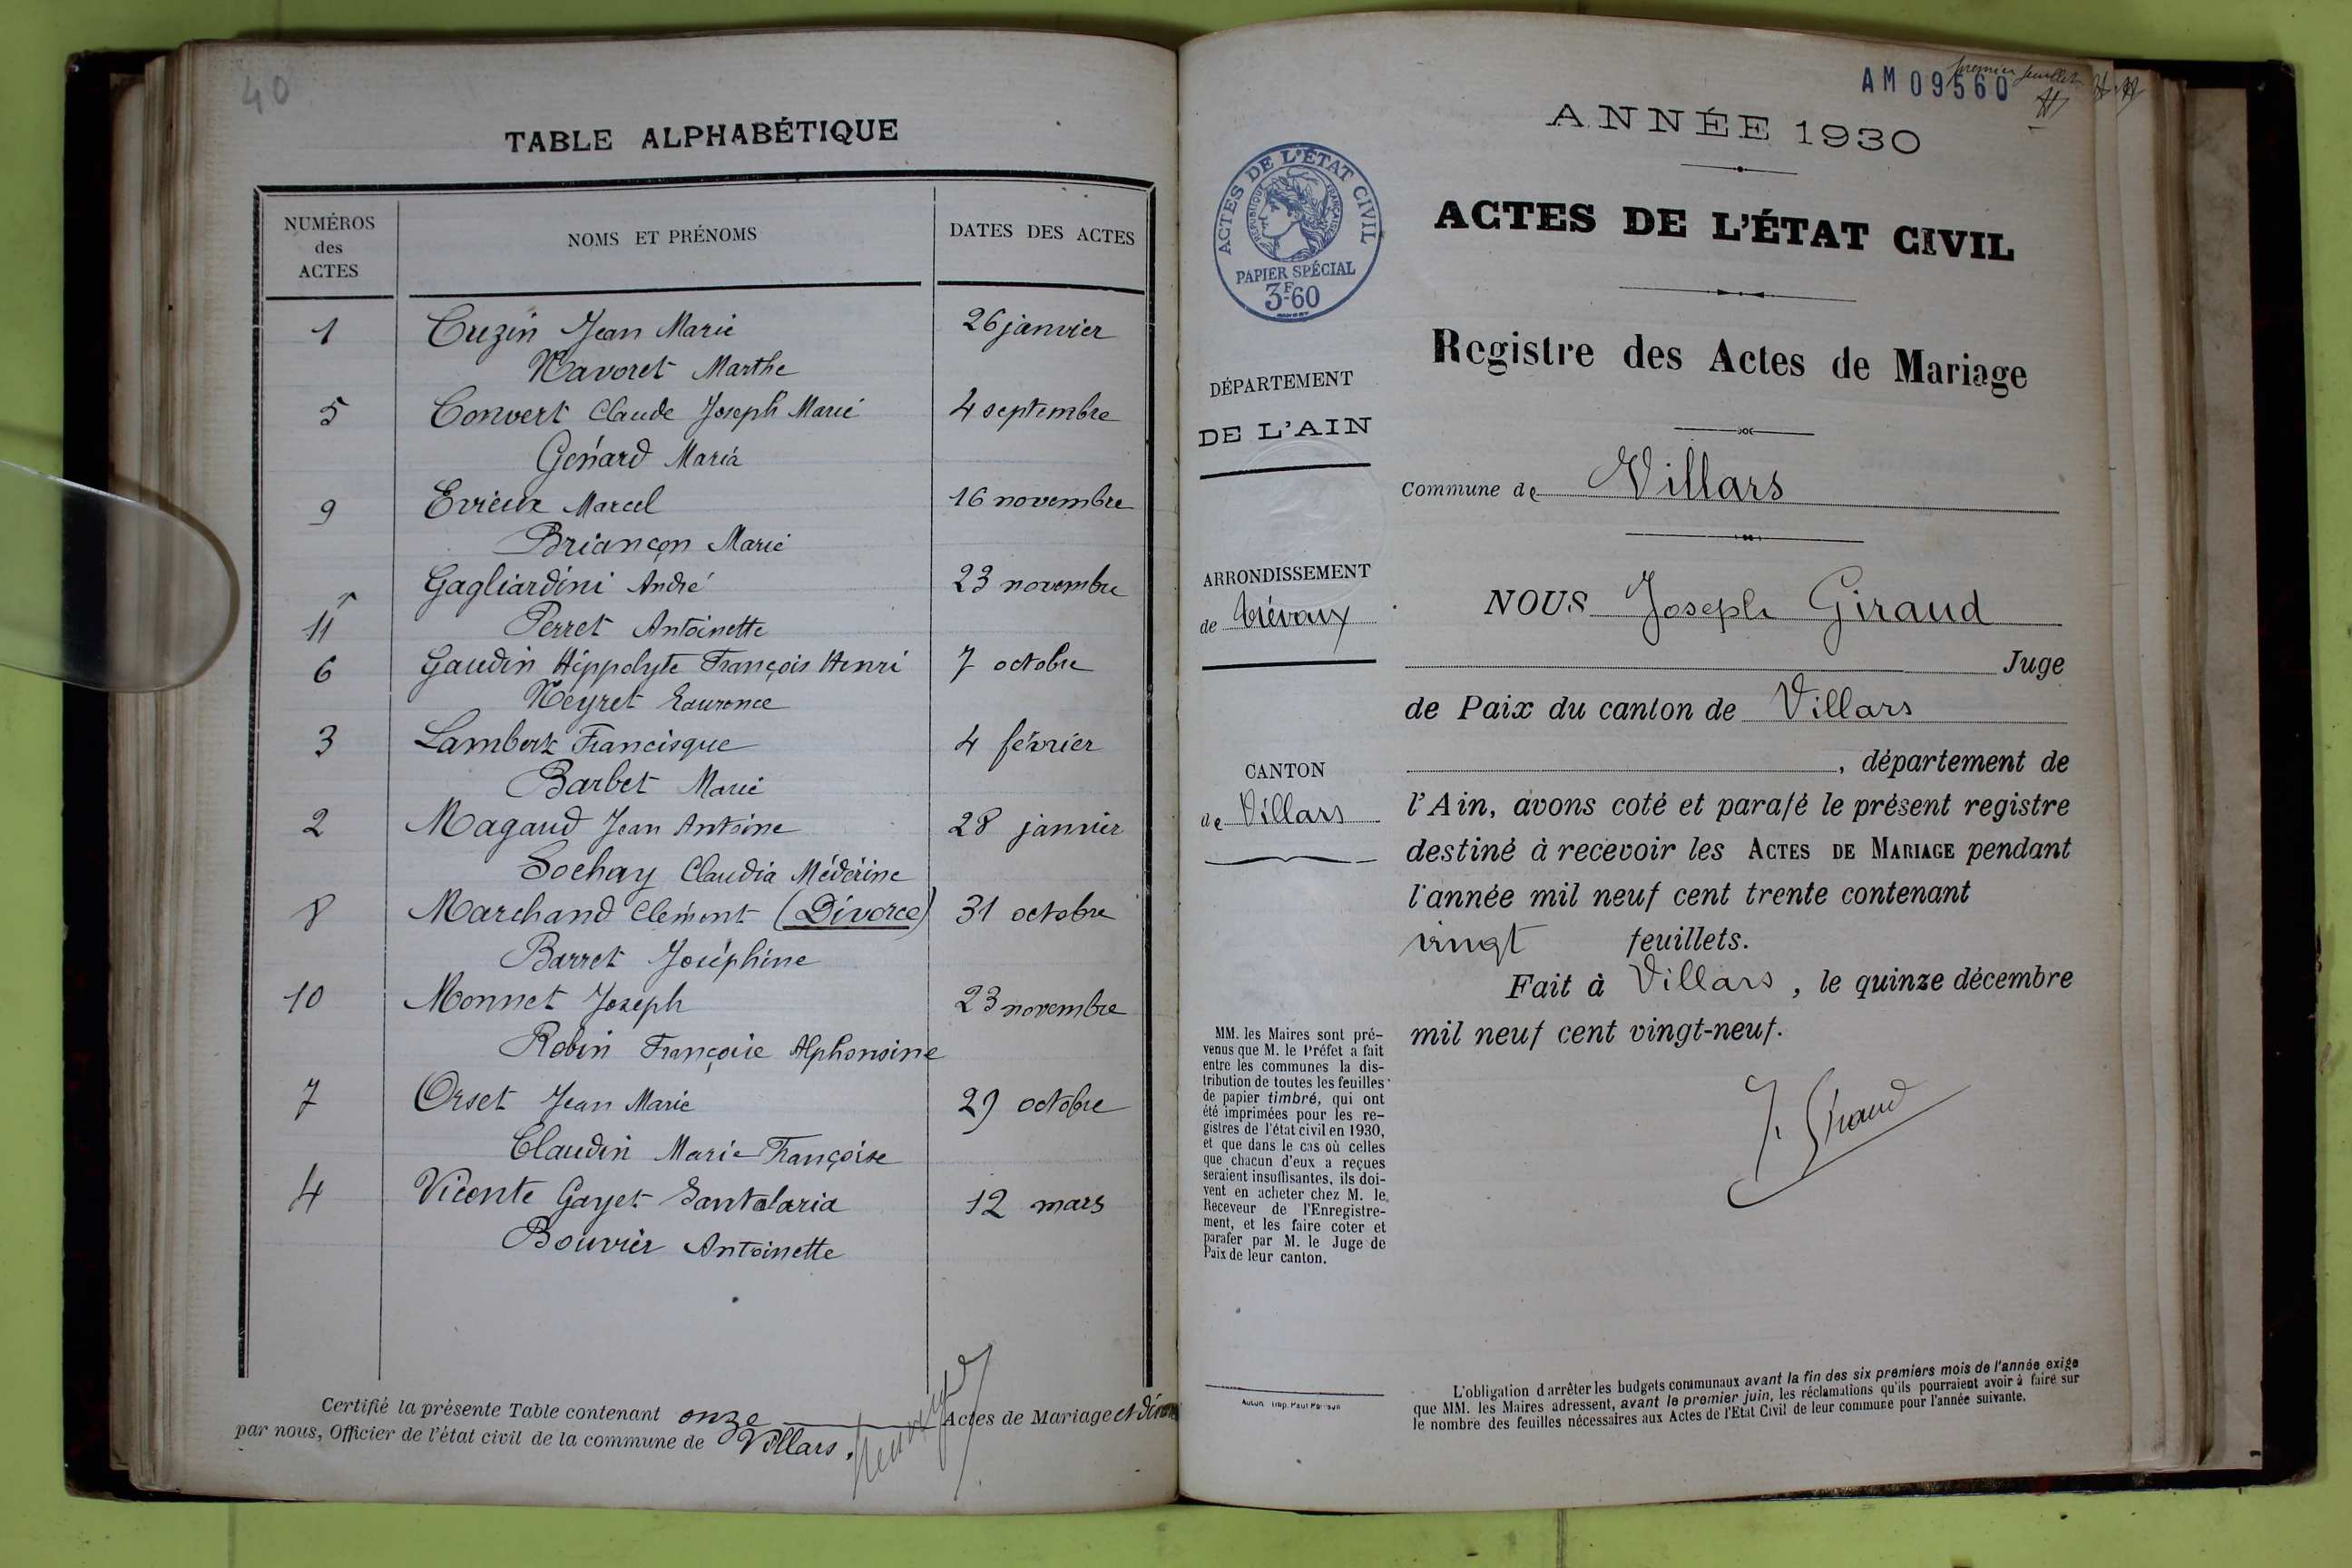 40
TABLE ALPHABÉTIQUE
NUMÉROS
des
ACTES
NOMS ET PRÉNOMS
DATES DES ACTES
1 Cuzin Jean Marie 26 janvier
Navoret Marthe
5 Convert Claude Joseph Marie 4 septembre
Genard Maria
9 Evieux Marcel 16 novembre
Briançon Marie
Gagliardini André 23 novembre
11 Perret Antoinette
6 Gaudin Hippolyte François Henri 7 octobre
Neyret Laurence
3 Lambert Francisque 4 février
Barbet Marie
2 Magaud Jean Antoine 28 janvier
Sochay Claudia Médérine
8 Marchand Clément (Divorce) 31 octobre
Barret Joséphine
10 Monnet Joseph 23 novembre
Robin Françoise Alphonsine
7 Orset Jean Marie 29 octobre
Claudin Marie Françoise
4 Vicente Gayet Santalaria 12 mars
Bouvier Antoinette
Certifié la présente Table contenant onze Actes de Mariage et
par nous, Officier de l'état civil de la commune de Villars.
AM 09560
premier feuillet
ANNÉE 1930
ACTES DE L'ÉTAT CIVIL
RÉPUBLIQUE FRANÇAISE
PAPIER SPÉCIAL
3F60
ACTES DE L'ÉTAT CIVIL
Registre des Actes de Mariage
DÉPARTEMENT
DE L'AIN
Commune de Villars
ARRONDISSEMENT
de Trévoux
CANTON
de Villars
NOUS Joseph Giraud
Juge
de Paix du canton de Villars
, département de
l'Ain, avons coté et parafé le présent registre
destiné à recevoir les ACTES DE MARIAGE pendant
l'année mil neuf cent trente contenant
vingt feuillets.
Fait à Villars, le quinze décembre
mil neuf cent vingt-neuf.
J. Giraud
MM. les Maires sont pré-
venus que M. le Préfet a fait
entre les communes la dis-
tribution de toutes les feuilles
de papier timbré, qui ont
été imprimées pour les re-
gistres de l'état civil en 1930,
et que dans le cas où celles
que chacun d'eux a reçues
seraient insuffisantes, ils doi-
vent en acheter chez M. le
Receveur de l'Enregistre-
ment, et les faire coter et
parafer par M. le Juge de
Paix de leur canton.
Autun, Imp. Paul
L'obligation d'arrêter les budgets communaux avant la fin des six premiers mois de l'année exige
que MM. les Maires adressent, avant le premier juin, les réclamations qu'ils pourraient avoir à faire sur
le nombre des feuilles nécessaires aux Actes de l'Etat Civil de leur commune pour l'année suivante.